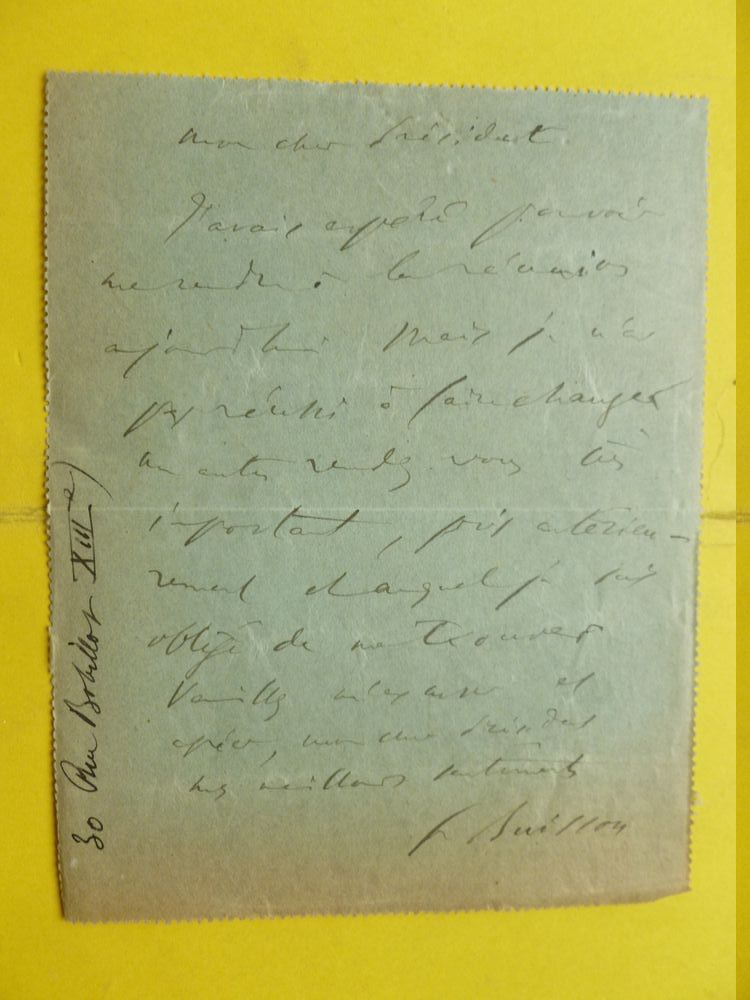 mon cher Président
J'avais espéré pouvoir
me rendre à la réunion
aujourd'hui Mais je n'ai
pas réussi à faire changer
un autre rendez vous très
important, pris antérieu-
rement et auquel je suis
obligé de me trouver
Veuillez m'excuser et
agréer, mon cher Président
mes meilleurs sentiments
F Buisson
30 Rue Bobillot XIIIe)